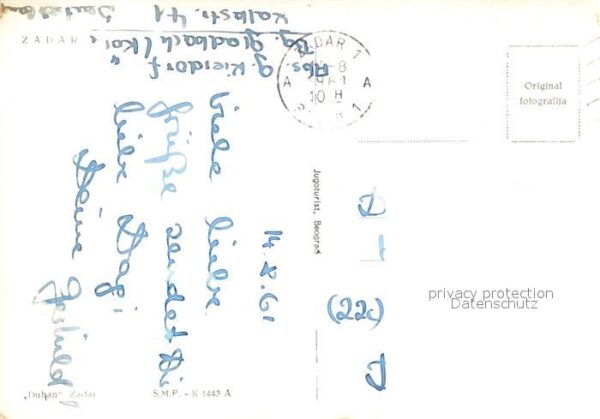 ZADAR
Abs. G. Kierdorf
Bg. Gladbach/Köln
Kalkstr. 41
ZADAR 1
10 H
A A
Original
fotografija
14.8.61
Viele liebe
Grüße sendet Dir
liebe Dagi
Deine
Jugoturist, Beograd
D
(22c)
D
privacy protection
Datenschutz
"Duhan" Zadar
S.M.P. - K 1443 A